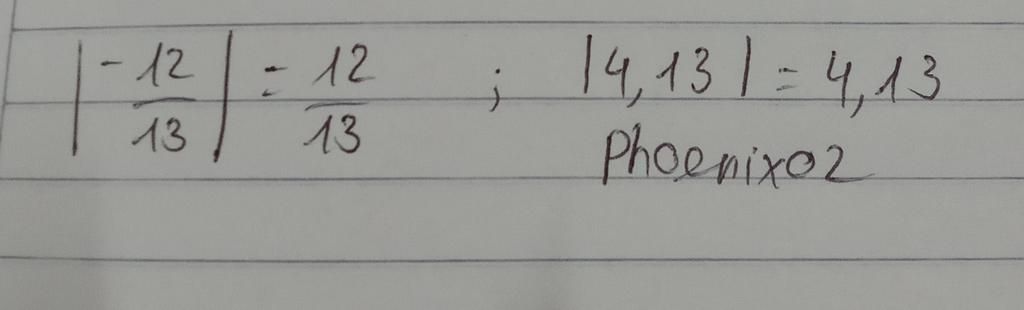 |-12/13| = 12/13 ; |4,13| = 4,13
Phoenix02